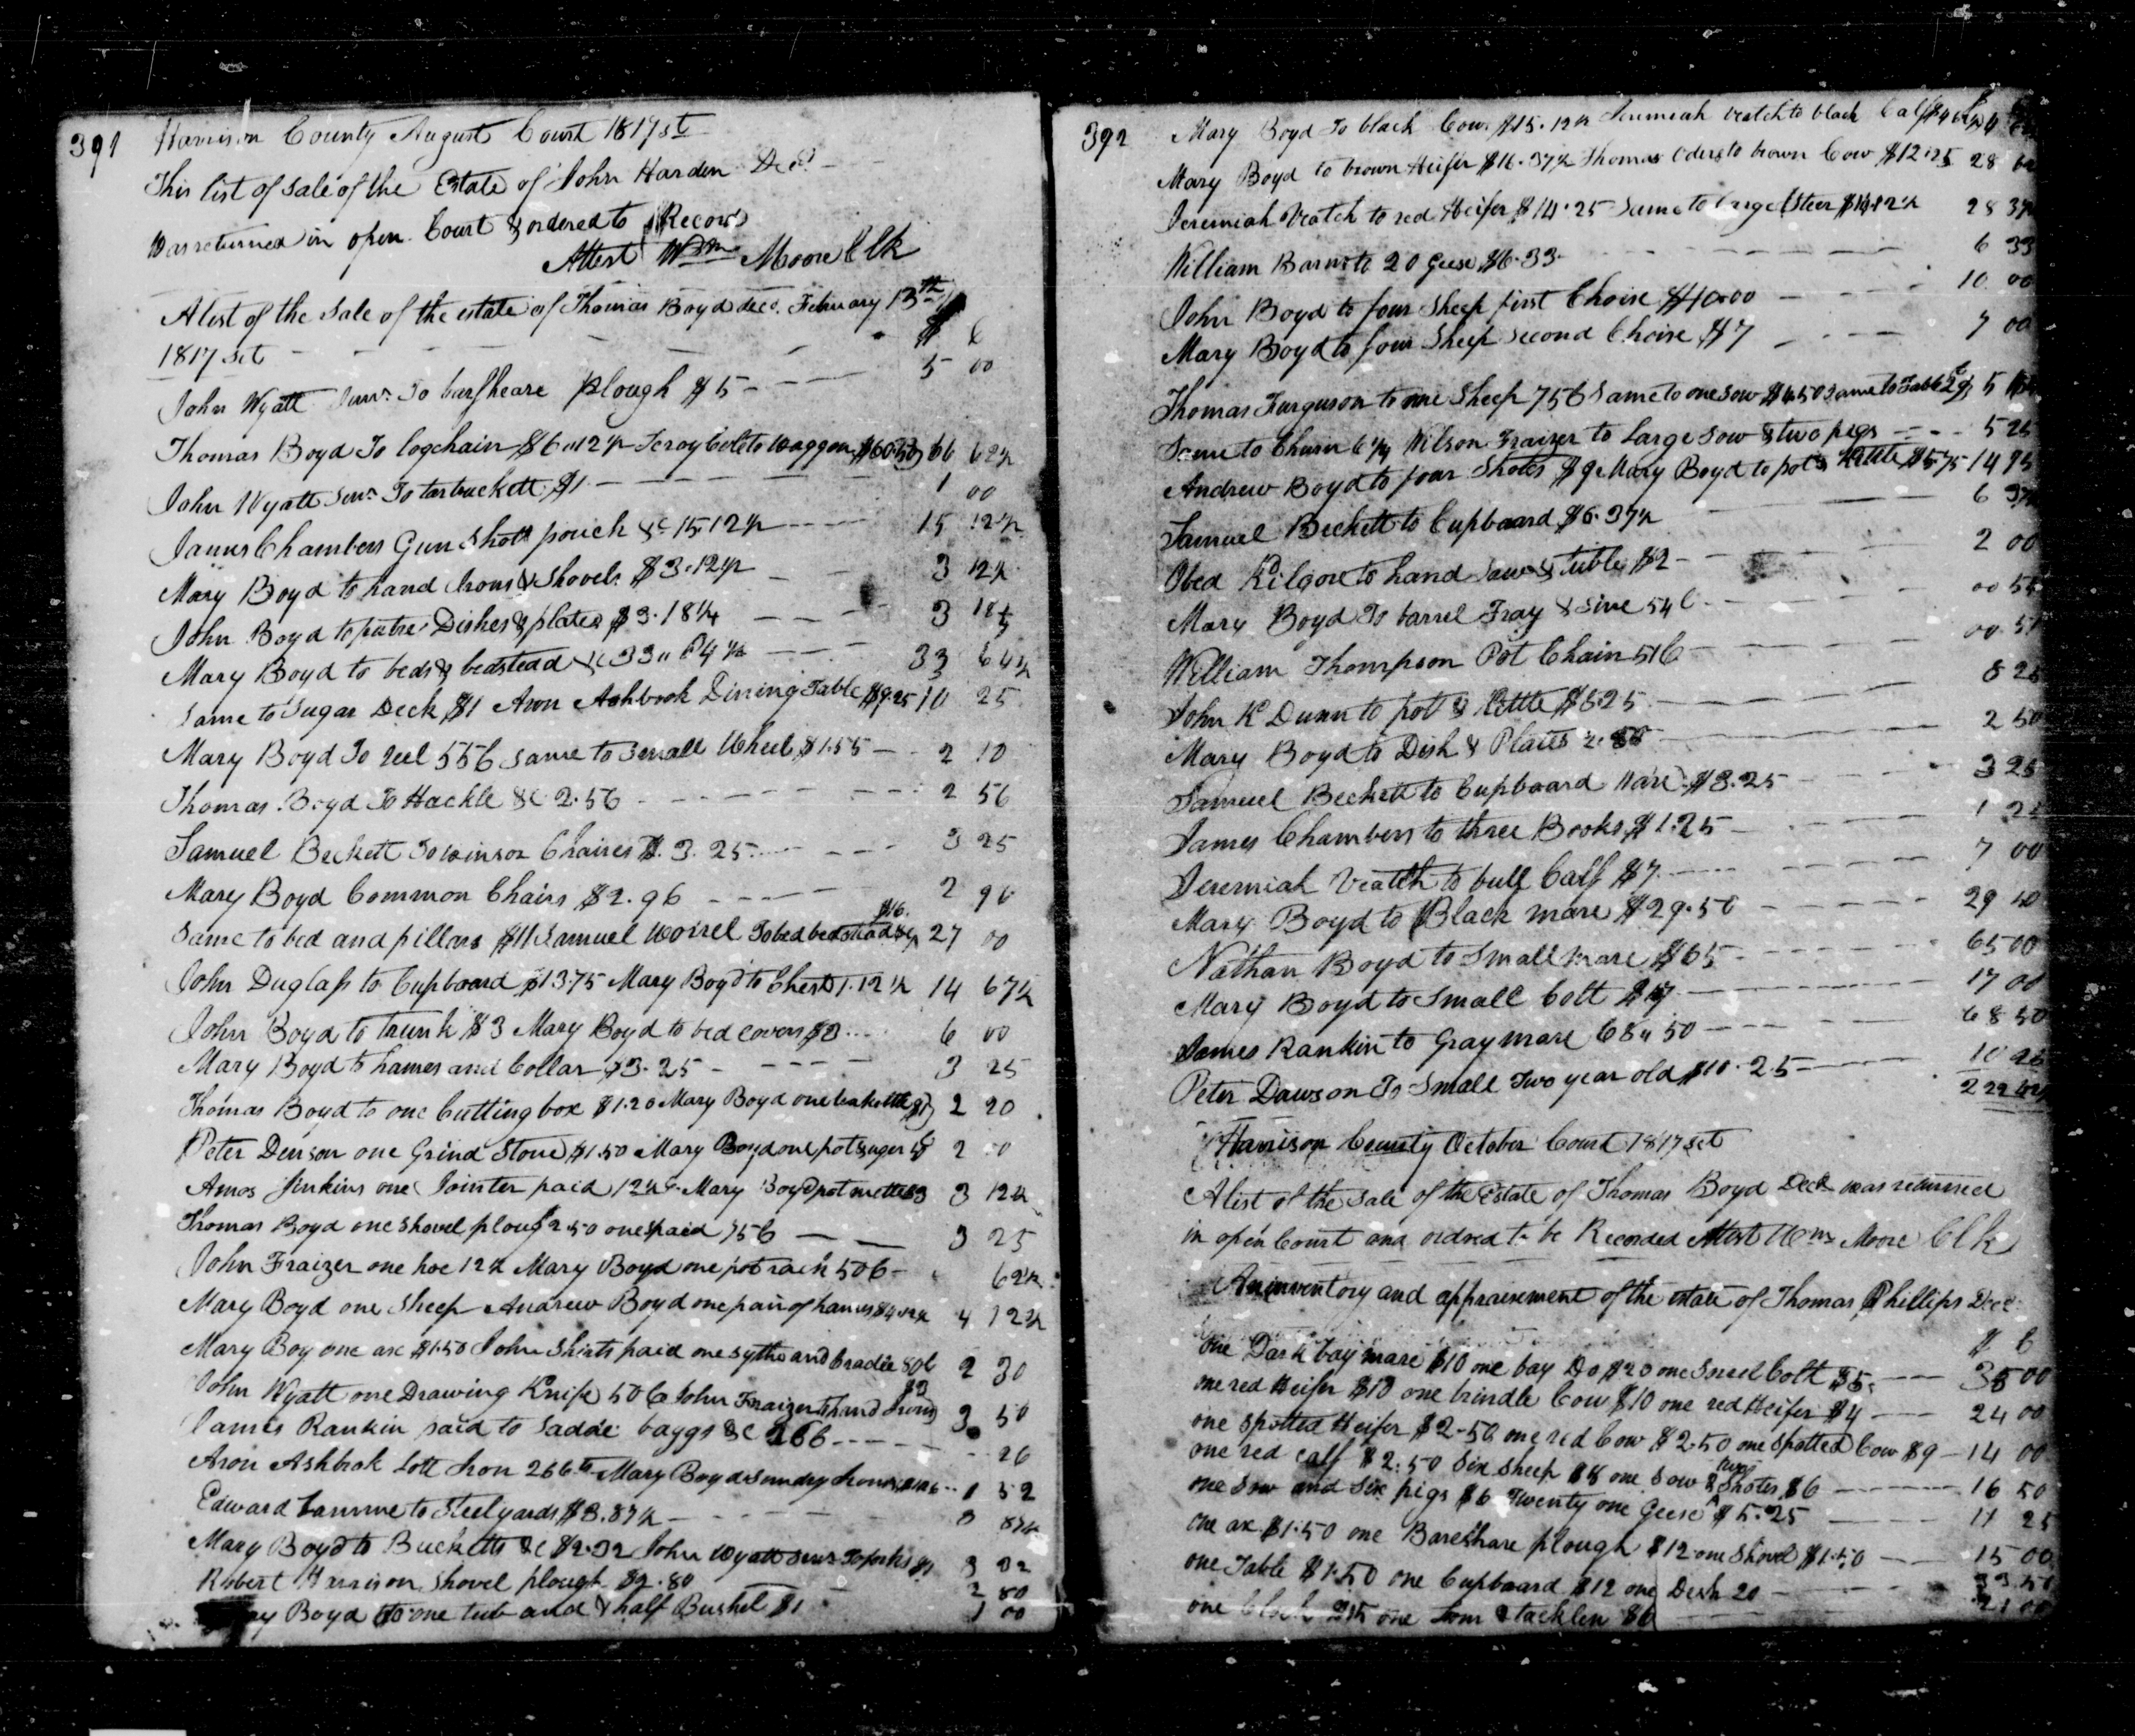 391
Harrison County August Court 1817 st
This list of sale of the Estate of John Harden Decd.
Was returned in open Court & ordered to Record
Attest Wm Moore Clk
A list of the Sale of the estate of Thomas Boyd decd. February 13th
1817 sct $ C
John Wyatt Senr. To barsheare plough $5 5 00
Thomas Boyd To logchain $6.12½ Leroy Cole to Waggon $60.50 66 62½
John Wyatt Senr. To tarbuckett $1 1 00
James Chambers Gun Shott pouch &c 15.12½ 15 12½
Mary Boyd to hand Irons & Shovels $3.12½ 3 12½
John Boyd to putre Dishes & plates $3.18¼ 3 18¼
Mary Boyd to beds & bedstead &c 33.. 64½ 33 64½
Same to Sugar Desk $1 Aron Ashbrook Dining Table $9.25 10 25
Mary Boyd To reel 55C Same to Small Wheel $1.55 2 10
Thomas Boyd To Hackle &c 2.56 2 56
Samuel Beckett To winsor Chaires $3.25 3 25
Mary Boyd Common Chairs $2.96 2 96
Same to bed and pillars $11 Samuel To bed bedstead &c $16. 27 00
John Duglass to Cupboard $13.75 Mary Boyd to Chest 1.12½ 14 67½
John Boyd to trunk $3 Mary Boyd to bed covers $3 6 00
Mary Boyd to hames and Collar $3.25 3 25
Thomas Boyd to one Cutting box $1.20 Mary Boyd one $1 2 20
Peter Denson one Grind Stone $1.50 Mary Boyd one pot 2 00
Amos Jinkins one Jointer paid 12½ Mary Boyd pot $3 3 12½
Thomas Boyd one shovel plough 2.50 one spaid 75C 3 25
John Fraizer one hoe 12½ Mary Boyd one pot rack 50C 62½
Mary Boyd one Sheep Andrew Boyd one pair of hames $4.12½ 4 12½
Mary Boy one ax $1.50 John Shirts paid one sythe and Cradle 80C 2 30
John Wyatt one Drawing Knife 50C John Fraizer To hand Irons $3 3 50
James Rankin paid to Saddle baggs &c 26C 26
Aron Ashbrok Lott Iron 26C Mary Boyd Sundry Irons 1 52
Edward Lamme to Steelyards $3.87½ 3 87½
Mary Boyd to Bucketts &c $2.32 John Wyatt Senr To forks $1 3 32
Robert Harrison Shovel plough $2.80 2 80
Boyd to one tub and & half Bushel $1 1 00
392
Mary Boyd To black Cow $15.12½ Jeremiah Veatch to black Calf
Mary Boyd to brown Heifer $16.37½ Thomas Oders to brown Cow $12.25 28
Jeremiah Veatch to red Heifer $14.25 Same to large Steer $14.12½ 28 37½
William Barns to 20 Geese $6.33 6 33
John Boyd to four Sheep first Choise $10.00 10 00
Mary Boyd to four Sheep Second Choise $7 7 00
Thomas Furguson to one Sheep 75C Same to one Sow $4.50 Same to Table 5
Same to Churn 6¼ Wilson Fraizer to Large Sow & two pigs 5 25
Andrew Boyd to four Shotes $9 Mary Boyd to pot & Kittle $5.75 14 75
Samuel Beckett to Cupboard $6.37½ 6 37½
Obed Kilgore to hand Saw & $2 2 00
Mary Boyd To barrel Tray & Sive 54C 00 54
William Thompson Pot Chain 51C 00 51
John K Dunn to pot & Kittle $8.25 8 25
Mary Boyd to Dish & Plates 2.50 2 50
Samuel Beckett to Cupboard Ware $3.25 3 25
James Chambers to three Books $1.25 1 25
Jeremiah Veatch to bull Calf $7 7 00
Mary Boyd to Black mare $29.50 29 50
Nathan Boyd to Small mare $65 65 00
Mary Boyd to Small Colt $17 17 00
James Rankin to Gray mare 68..50 68 50
Peter Dawson To Small Two year old $10.25 10 25
Harrison County October Court 1817 sct
A list of the Sale of the Estate of Thomas Boyd Decd was returned
in open Court and ordred to be Recorded Attest Wm Moore Clk
An inventory and appraisement of the estate of Thomas Phillips Decd
$ C
one Dark bay mare $10 one bay Do $20 one Sorrel Colt $5 35 00
one red Heifer $10 one brindle Cow $10 one red Heifer $4 24 00
one Spotted Heifer $2.50 one red Cow $2.50 one Spotted Cow $9 14 00
one red calf $2.50 Six Sheep $8 one Sow & two Shotes $6 16 50
one Sow and Six pigs $6 Twenty one Geese $5.25 11 25
one ax $1.50 one Bareshare plough $12 one Shovel $1.50 15 00
one Table $1.50 one Cupboard $12 one Desk 20 33 50
one Clock $15 one Lom & tacklen $6 21 00